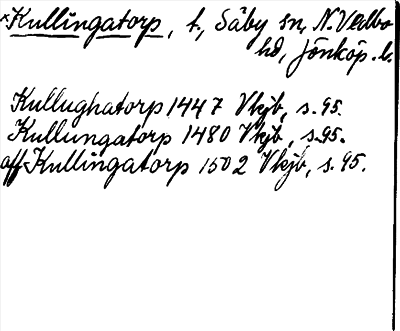 *Kullingatorp, t., Säby sn, N. Vedbo
hd, Jönköp. l.
Kullughatorp 1447 Vkjb, s. 95.
Kullungatorp 1480 Vkjb, s. 95.
aff Kullingatorp 1502 Vkjb, s. 95.